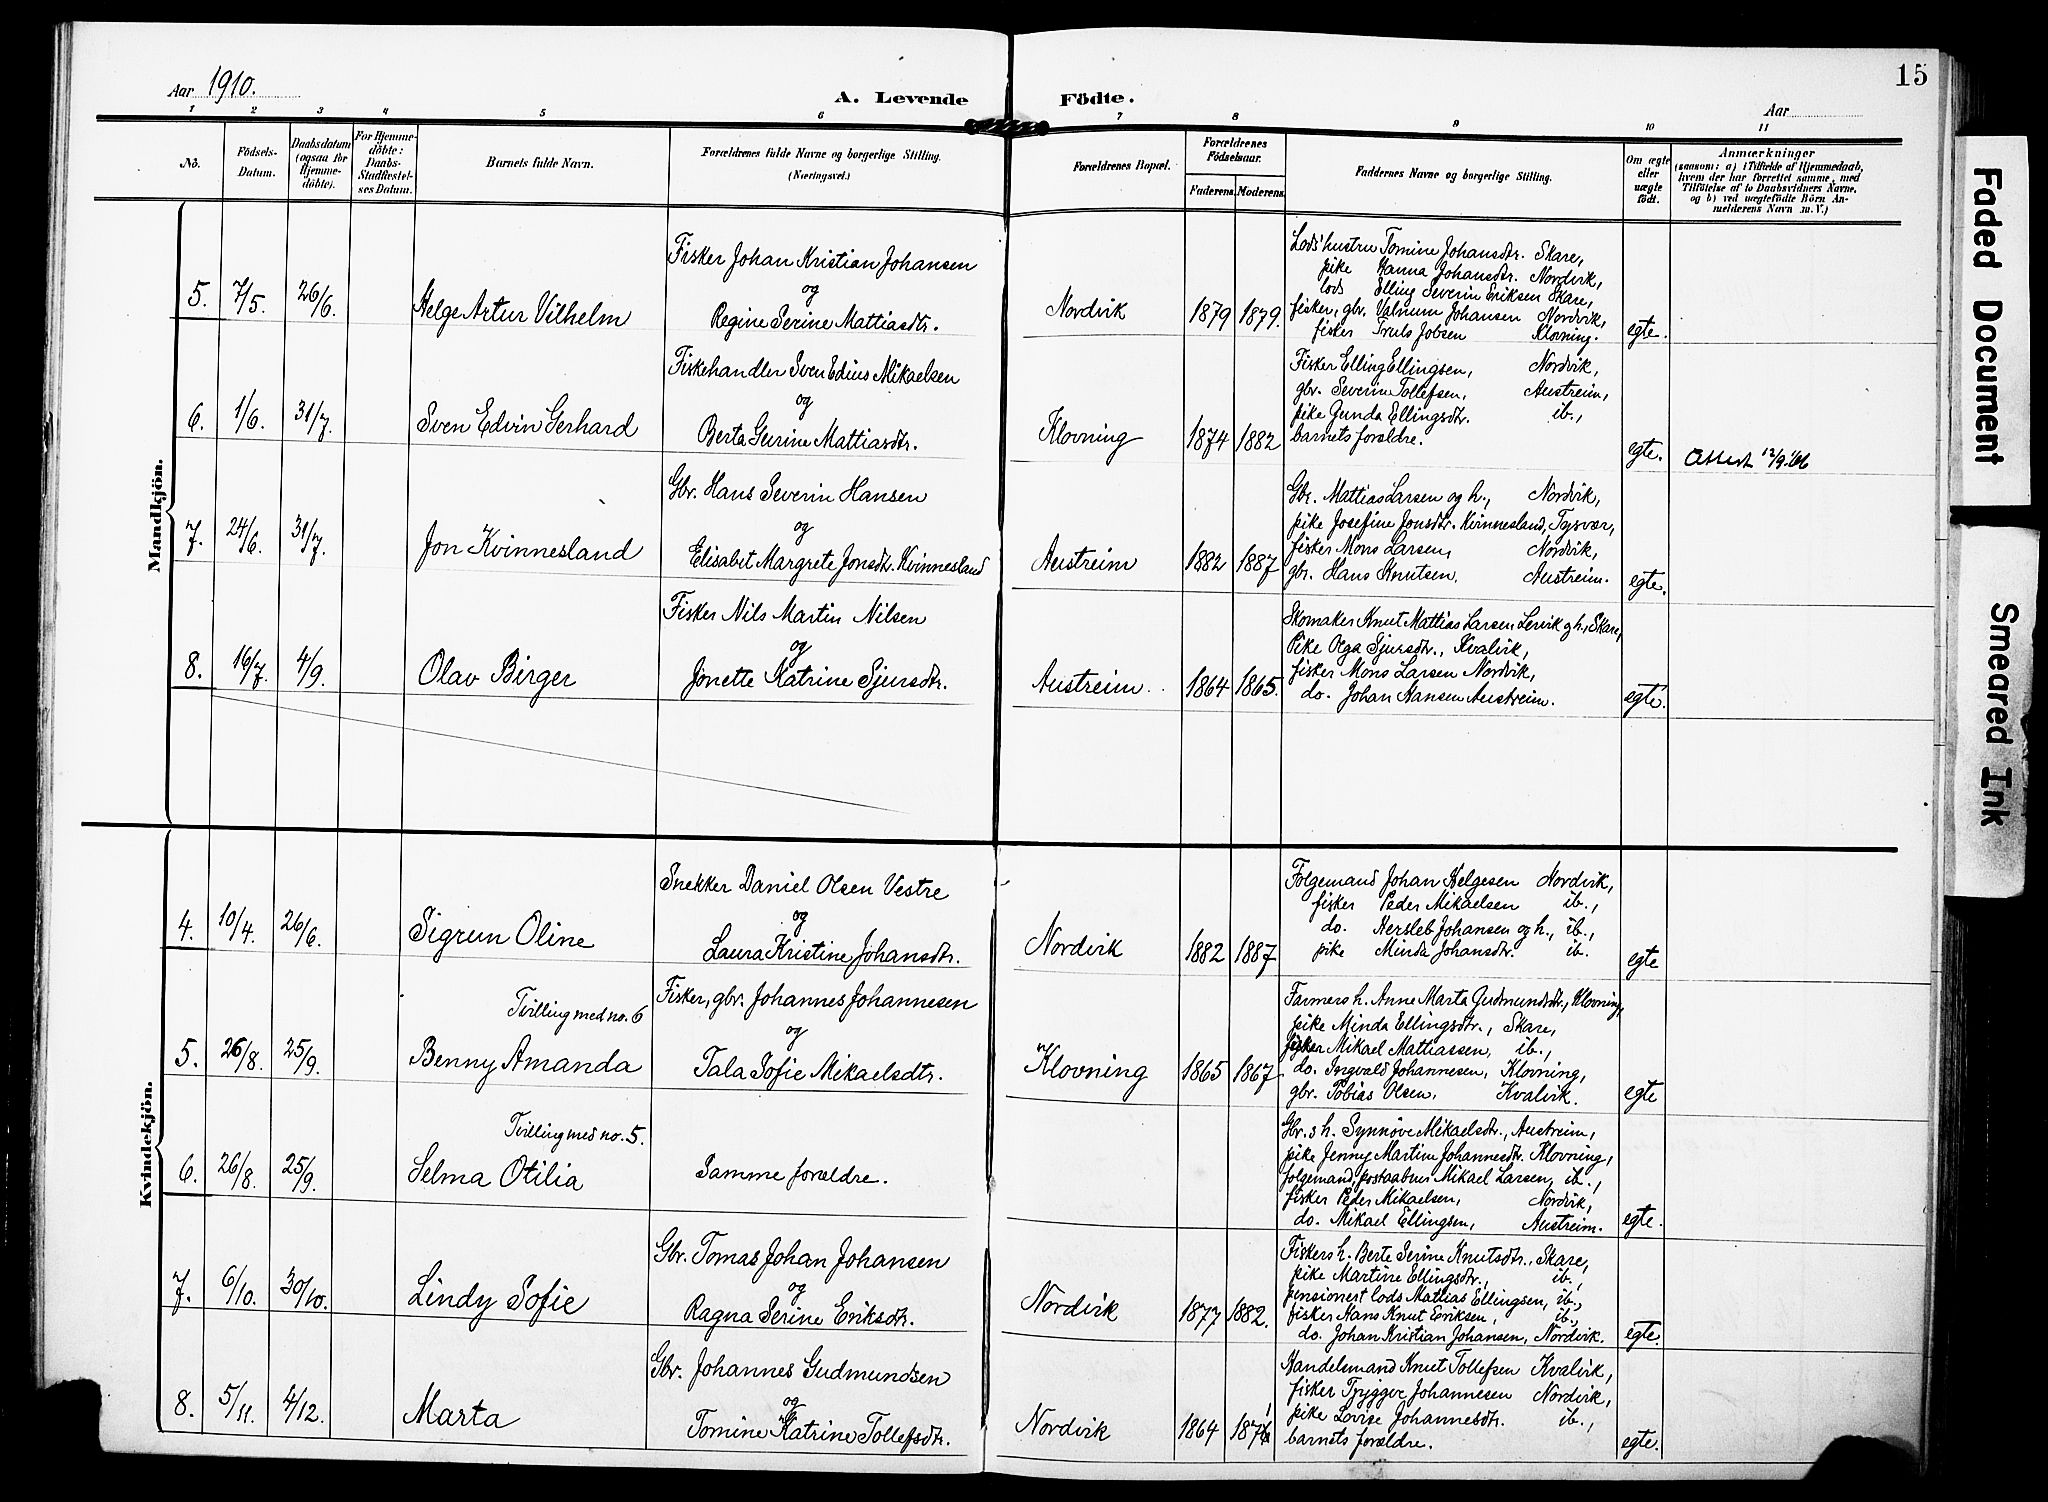 15
Aar 1910.
A. Levende Födte.
Aar
1 2 3 4 5 6 7 8 9 10 11
No.
Födsels-
Datum.
Daabsdatum
(ogsaa for
Hjemme-
döbte).
For Hjemme-
döbte:
Daabs-
Stadfæstel-
ses Datum.
Barnets fulde Navn.
Forældrenes fulde Navne og borgerlige Stilling.
(Næringsvei.)
Forældrenes Bopæl.
Forældrenes
Födselsaar.
Faderens. Moderens.
Faddernes Navne og borgerlige Stilling.
Om ægte
eller
uægte
födt.
Anmærkninger
(saasom: a) i Tilfælde af Hjemmedaab,
hvem der har forrettet samme, med
Tilföielse af to Daabsvidners Navne,
og b) ved uægtefödte Börn An-
melderens Navn m. V.)
Mandkjön.
5. 7/5. 26/6. Helge Artur Vilhelm
Fisker Johan Kristian Johansen
og
Regine Serine Mattiasdtr.
Nordvik 1879 1879.
Lods' hustru Tomine Johansdtr. Skare,
pike Hanna Johansdtr. Nordvik,
lods Elling Severin Eriksen Skare,
fisker, gbr. Valnum Johansen Nordvik,
fisker Truls Jobsen Klovning.
egte.
6. 1/6. 31/7. Sven Edvin Gerhard
Fiskehandler Sven Edius Mikaelsen
og
Berta Gurine Mattiasdtr.
Klovning 1874 1882
Fisker Elling Ellingsen, Nordvik,
gbr. Severin Tollefsen, Austreim,
pike Gunda Ellingsdtr. ib.,
barnets forældre.
egte. Attest 12/9.66
7. 24/6. 31/7. Jon Kvinnesland
Gbr. Hans Severin Hansen
og
Elisabet Margrete Jonsdtr. Kvinnesland
Austreim 1882 1887
Gbr. Mattias Larsen og h., Nordvik,
pike Josefine Jonsdtr. Kvinnesland, Tysvær,
fisker Mons Larsen, Nordvik,
gbr. Hans Knutsen, Austreim.
egte.
8. 16/7. 4/9. Olav Birger
Fisker Nils Martin Nilsen
og
Jonette Katrine Sjursdtr.
Austreim. 1864 1865.
Skomaker Knut Mattias Larsen Lervik og h., Skare,
Pike Olga Sjursdtr., Kvalvik,
fisker Mons Larsen Nordvik,
do. Johan Hansen Austreim.
egte.
Kvindekjön.
4. 10/4. 26/6. Sigrun Oline
Snekker Daniel Olsen Vestre
og
Laura Kristine Johansdtr.
Nordvik 1882 1887
Folgemand Johan Helgesen Nordvik,
fisker Peder Mikaelsen ib.,
do. Hersleb Johansen og h., ib.,
pike Minda Johansdtr. ib.
egte
Tvilling med no. 6
5. 26/8. 25/9. Benny Amanda
Fisker, gbr. Johannes Johannesen
og
Tala Sofie Mikaelsdtr.
Klovning 1865 1867
Farmers h. Anne Marta Gudmundsdtr., Klovning,
pike Minda Ellingsdtr., Skare,
fisker Mikael Mattiassen, ib.,
do. Ingvald Johannesen, Klovning,
gbr. Tobias Olsen, Kvalvik.
egte
Tvilling med no. 5.
6. 26/8. 25/9. Selma Otilia
Samme forældre.
Gbr.s h. Synnøve Mikaelsdtr., Austreim,
pike Jenny Martine Johannesdtr. Klovning,
folgemand, postaabner Mikael Larsen, ib.,
fisker Peder Mikaelsen, Nordvik,
do. Mikael Ellingsen, Austreim.
egte.
7. 6/10. 30/10. Lindy Sofie
Gbr. Tomas Johan Johansen
og
Ragna Serine Eriksdtr.
Nordvik 1877 1882.
Fiskers h. Berte Serine Knutsdtr., Skare,
pike Martine Ellingsdtr., ib.,
pensionert lods Mattias Ellingsen, ib.,
fisker Hans Knut Eriksen, ib.,
do. Johan Kristian Johansen, Nordvik.
egte.
8. 5/11. 4/12. Marta
Gbr. Johannes Gudmundsen
og
Tomine Katrine Tollefsdtr.
Nordvik 1864
Handelsmand Knut Tollefsen Kvalvik,
fisker Tryggve Johannesen Nordvik,
pike Lovise Johannesdtr. ib.,
barnets forældre.
egte.
Faded Document
Smeared Ink